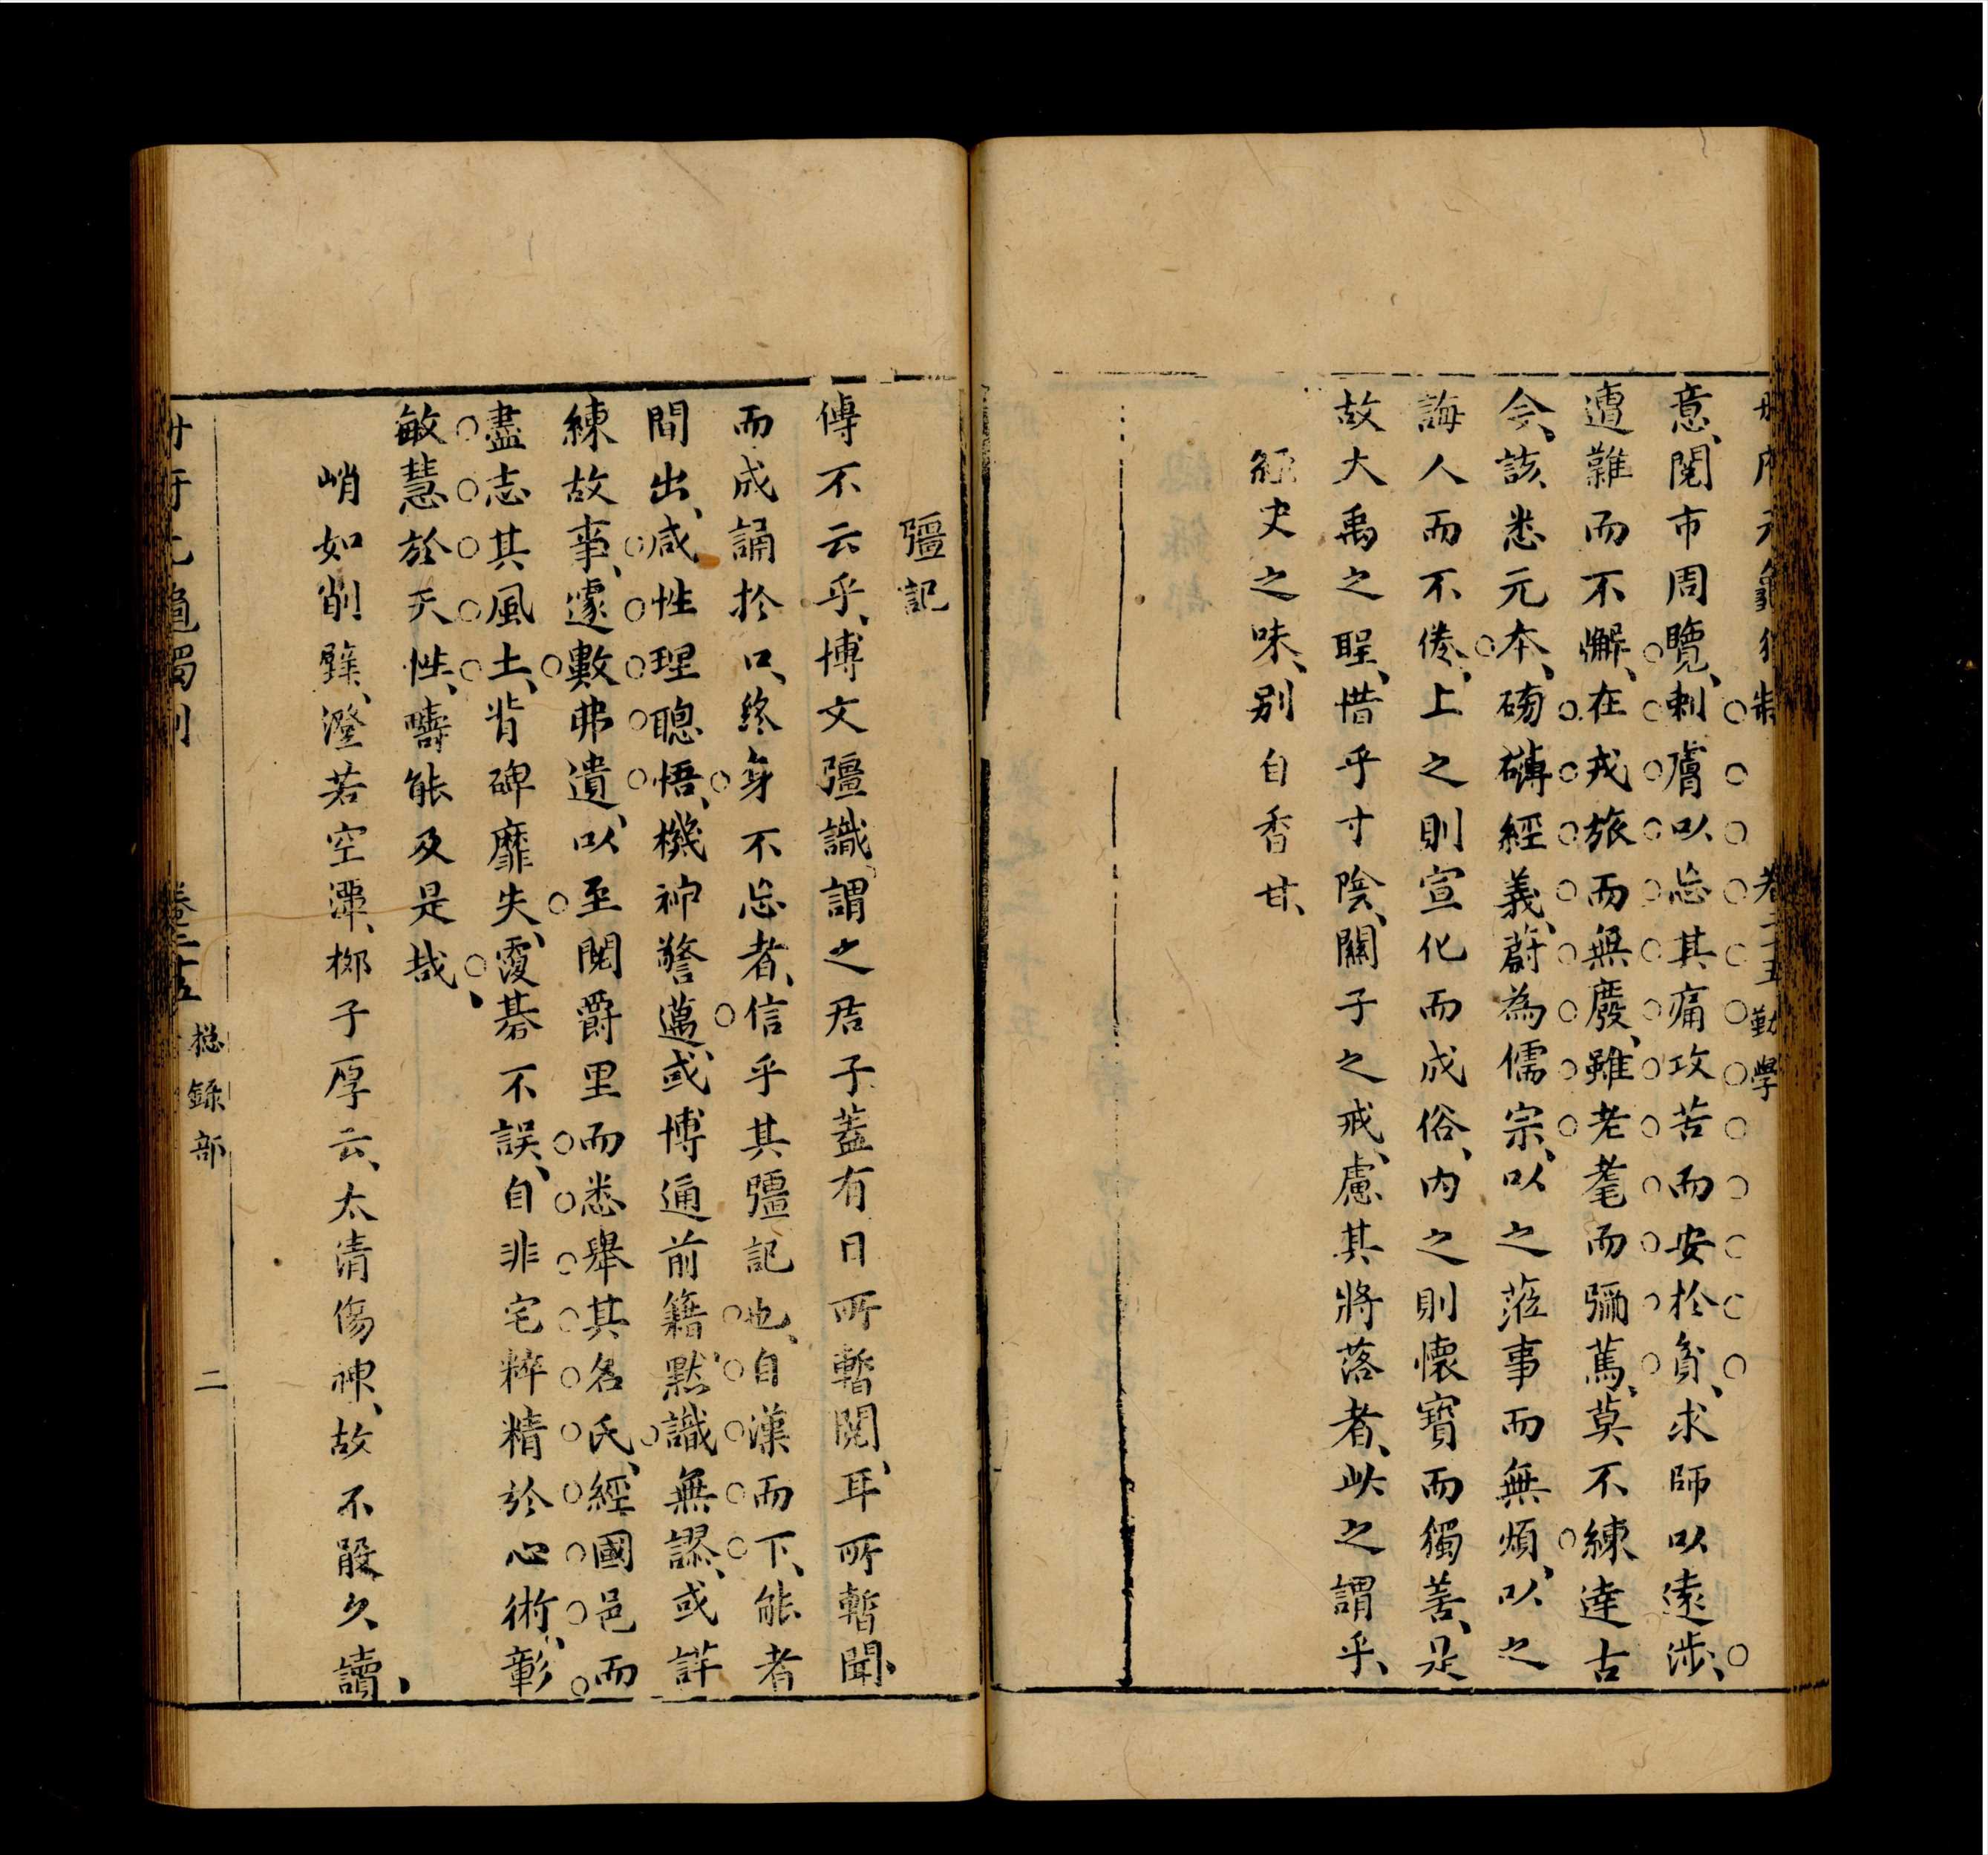 冊府元龜獨制　卷二十五　勤學
意、閱市周覽、刺膚以忘其痛攻苦而安於貧、求師以遠涉、
遭難而不懈、在戎旅而無廢、雖老耄而彌篤、莫不練達古
今、該悉元本、磅礴經義、蔚為儒宗、以之蒞事而無煩、以之
誨人而不倦、上之則宣化而成俗、內之則懷寶而獨善、是
故大禹之聖、惜乎寸陰、闕子之戒、慮其將落者、此之謂乎、
經史之味、別自香甘、
彊記
傳不云乎、博文彊識、謂之君子蓋有日所暫閱、耳所暫聞、
而成誦於口、終身不忘者、信乎其彊記也、自漢而下、能者
間出、咸性理聰悟、機神警邁、或博通前籍、默識無謬、或詳
練故事、遽數弗遺、以至閱爵里而悉舉其名氏、經國邑而
盡志其風土、背碑靡失、覆碁不誤、自非宅粹精於心術、彰
敏慧於天性、疇能及是哉、
峭如削壁、澄若空潭、柳子厚云、太清傷神、故不敢久讀、
冊府元龜獨制　卷二十五　總錄部　二